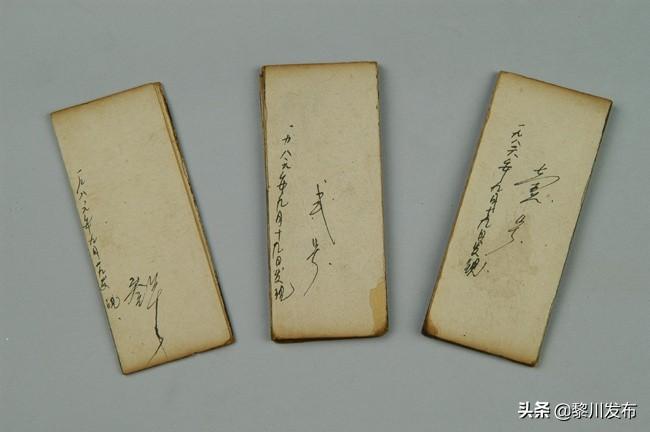 一九八六年九月十九日发现
一九八六年九月十九日发现
弍号
一九八六年九月十九日发现
壹号
头条 @黎川发布